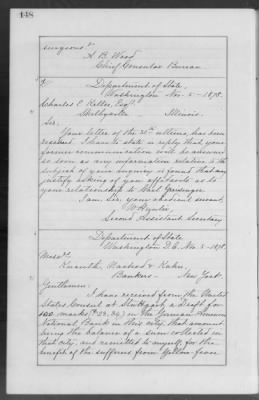 448
surgeons."
A. B. Wood
Chief Consular Bureau
Department of State,
Washington Nov. 5 - 1878.
Charles C. Keller, Esqr.
Shelbyville Illinois.
Sir,
Your letter of the ult., has been
received. I have to state in reply that your
former communication will be answered
so soon as any information relative to the
subject of your inquiry is found that may
justify asking of your affidavits as to
your relationship to
I am, Sir, your obedient servant,
W Hunter
Second Assistant Secretary
Department of State
Washington D.C. Nov. 5 - 1878.
Messrs.
Knauth, Nachod & Kuhn,
Bankers - New York.
Gentlemen:
I have received from the United
States Consul at Stuttgart, a draft for
100 marks ($23.34) on the German American
National Bank in this city, that amount
being the balance of a sum collected in
that city, and remitted to myself, for the
benefit of the sufferers from Yellow-fever